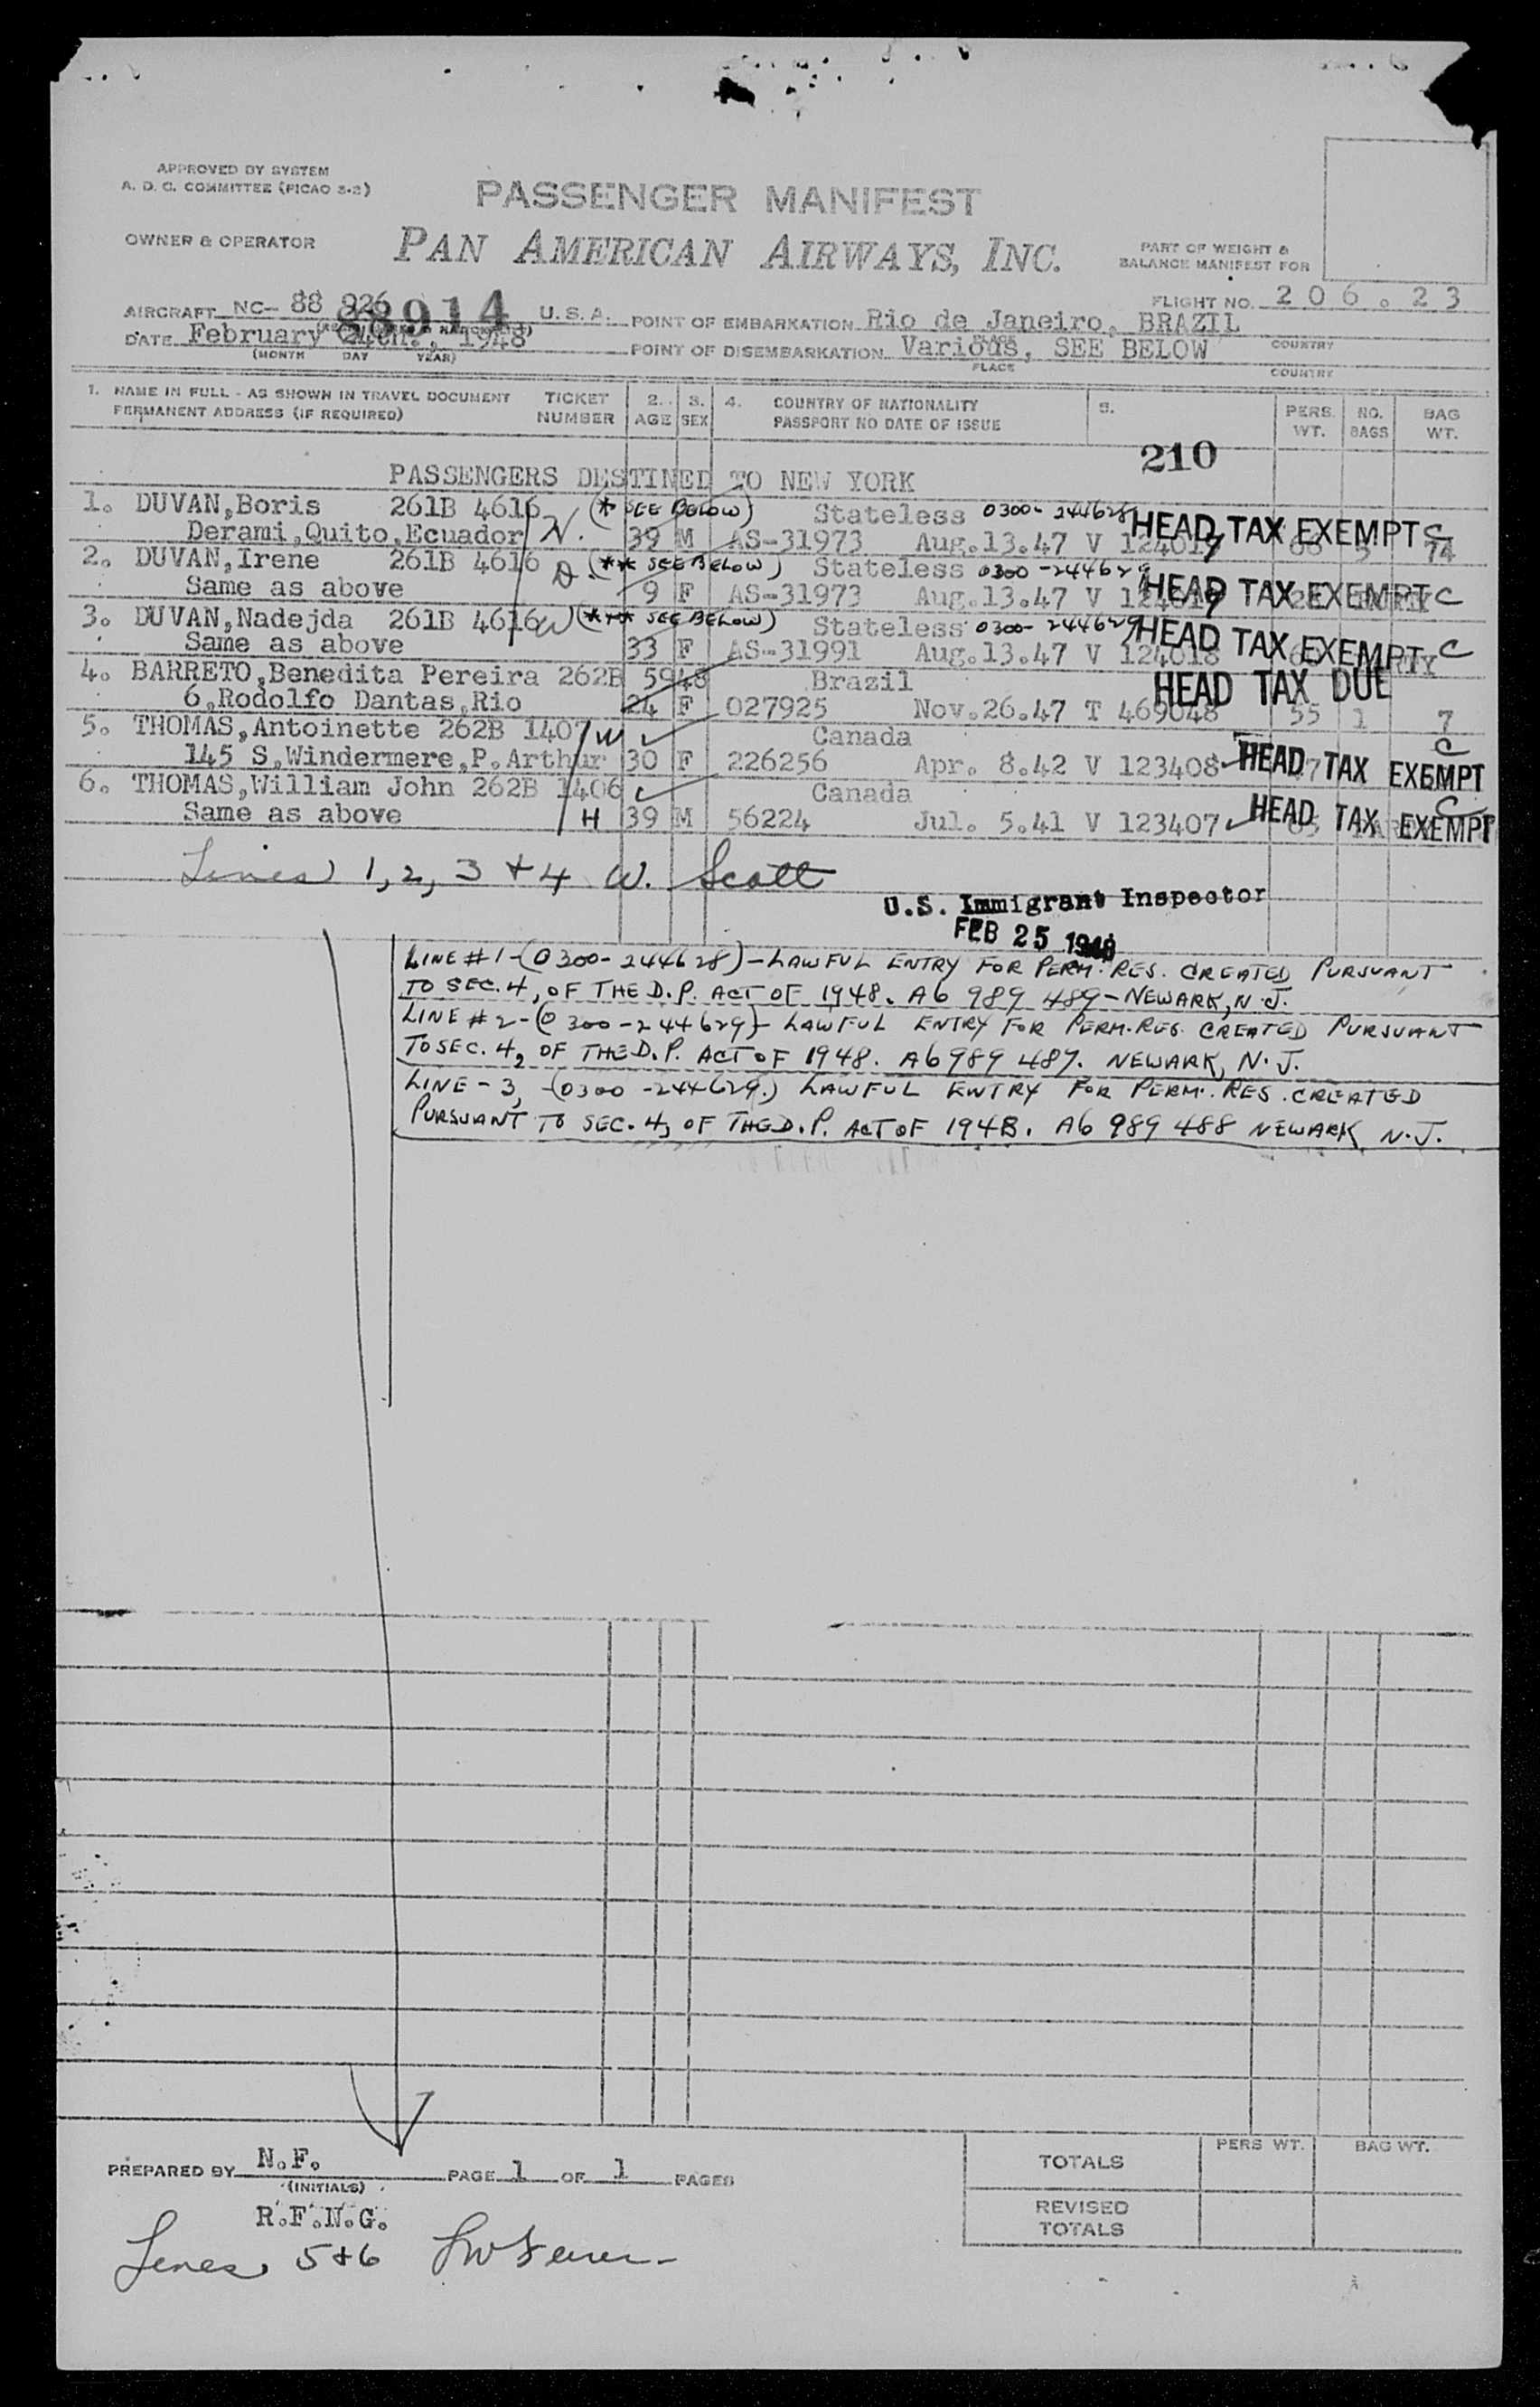 APPROVED BY SYSTEM
A. D. C. COMMITTEE (PICAO 3-2)
PASSENGER MANIFEST
OWNER & OPERATOR PAN AMERICAN AIRWAYS, INC.
PART OF WEIGHT &
BALANCE MANIFEST FOR
FLIGHT NO. 206.23
AIRCRAFT NC- 88 926 88914 U.S.A. POINT OF EMBARKATION Rio de Janeiro, BRAZIL
PLACE COUNTRY
DATE February 24th., 1948 POINT OF DISEMBARKATION Various, SEE BELOW
(MONTH DAY YEAR) PLACE COUNTRY
1. NAME IN FULL - AS SHOWN IN TRAVEL DOCUMENT TICKET 2. 3. 4. COUNTRY OF NATIONALITY 5. PERS. NO. BAG
PERMANENT ADDRESS (IF REQUIRED) NUMBER AGE SEX PASSPORT NO DATE OF ISSUE WT. BAGS WT.
210
PASSENGERS DESTINED TO NEW YORK
1. DUVAN,Boris 261B 4616 (* SEE BELOW) Stateless 0300-244628 HEAD TAX EXEMPT C
Derami,Quito,Ecuador N. 39 M AS-31973 Aug.13.47 V 124017 74
2. DUVAN,Irene 261B 4616 D. (** SEE BELOW) Stateless 0300-244629 HEAD TAX EXEMPT C
Same as above 9 F AS-31973 Aug.13.47 V 124019
3. DUVAN,Nadejda 261B 4616 W (*** SEE BELOW) Stateless 0300-244629 HEAD TAX EXEMPT C
Same as above 33 F AS-31991 Aug.13.47 V 124018
4. BARRETO,Benedita Pereira 262B 5948 Brazil HEAD TAX DUE
6,Rodolfo Dantas,Rio 24 F 027925 Nov.26.47 T 469048 55 1 7
5. THOMAS,Antoinette 262B 1407 W Canada C
145 S.Windermere,P.Arthur 30 F 226256 Apr. 8.42 V 123408 HEAD TAX EXEMPT
6. THOMAS,William John 262B 1406 Canada C
Same as above H 39 M 56224 Jul. 5.41 V 123407 HEAD TAX EXEMPT
Lines 1, 2, 3 + 4 W. Scott
U.S. Immigrant Inspector
FEB 25 1948
LINE #1-(0300-244628)-LAWFUL ENTRY FOR PERM. RES. CREATED PURSUANT
TO SEC. 4, OF THE D.P. ACT OF 1948. A6 989 489-NEWARK, N.J.
LINE #2-(0300-244629)- LAWFUL ENTRY FOR PERM. RES. CREATED PURSUANT
TO SEC. 4, OF THE D.P. ACT OF 1948. A6989 487. NEWARK, N.J.
LINE-3, -(0300-244629.) LAWFUL ENTRY FOR PERM. RES. CREATED
PURSUANT TO SEC. 4, OF THE D.P. ACT OF 1948. A6 989 488 NEWARK, N.J.
PREPARED BY N.F. PAGE 1 OF 1 PAGES
(INITIALS)
R.F.N.G.
TOTALS PERS WT. BAG WT.
REVISED
TOTALS
Lines 5+6